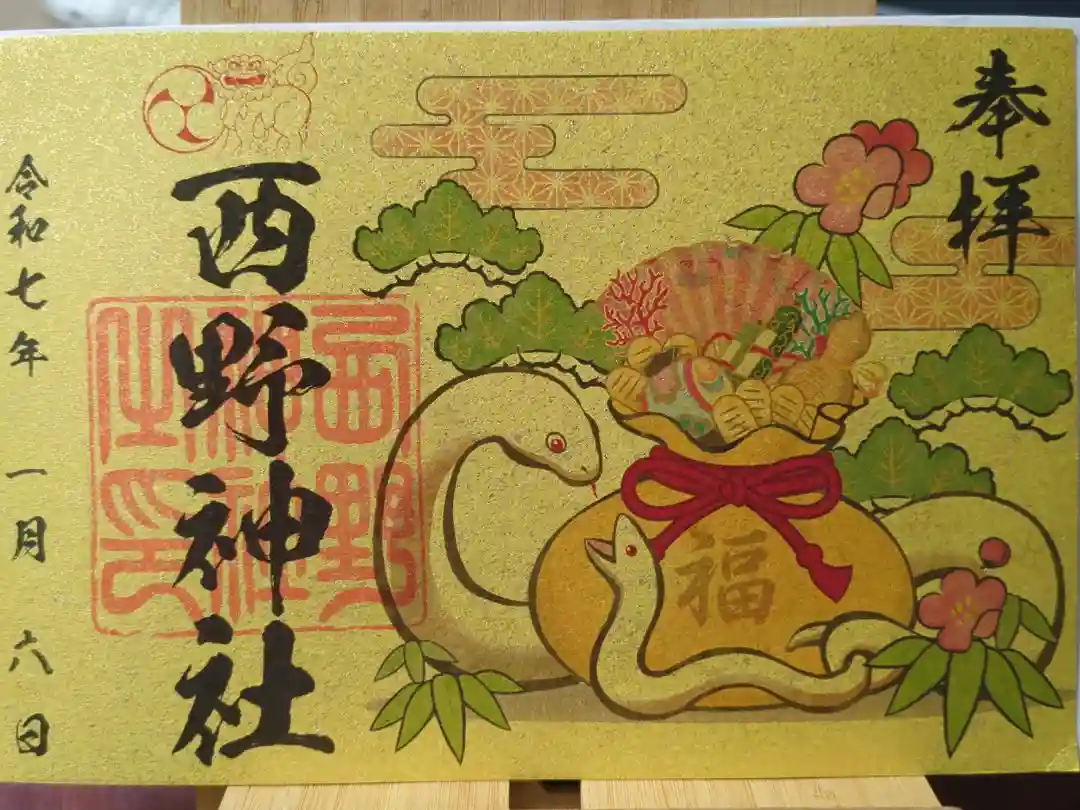 奉拝
西野神社
西野神社之印
福
令和七年一月六日